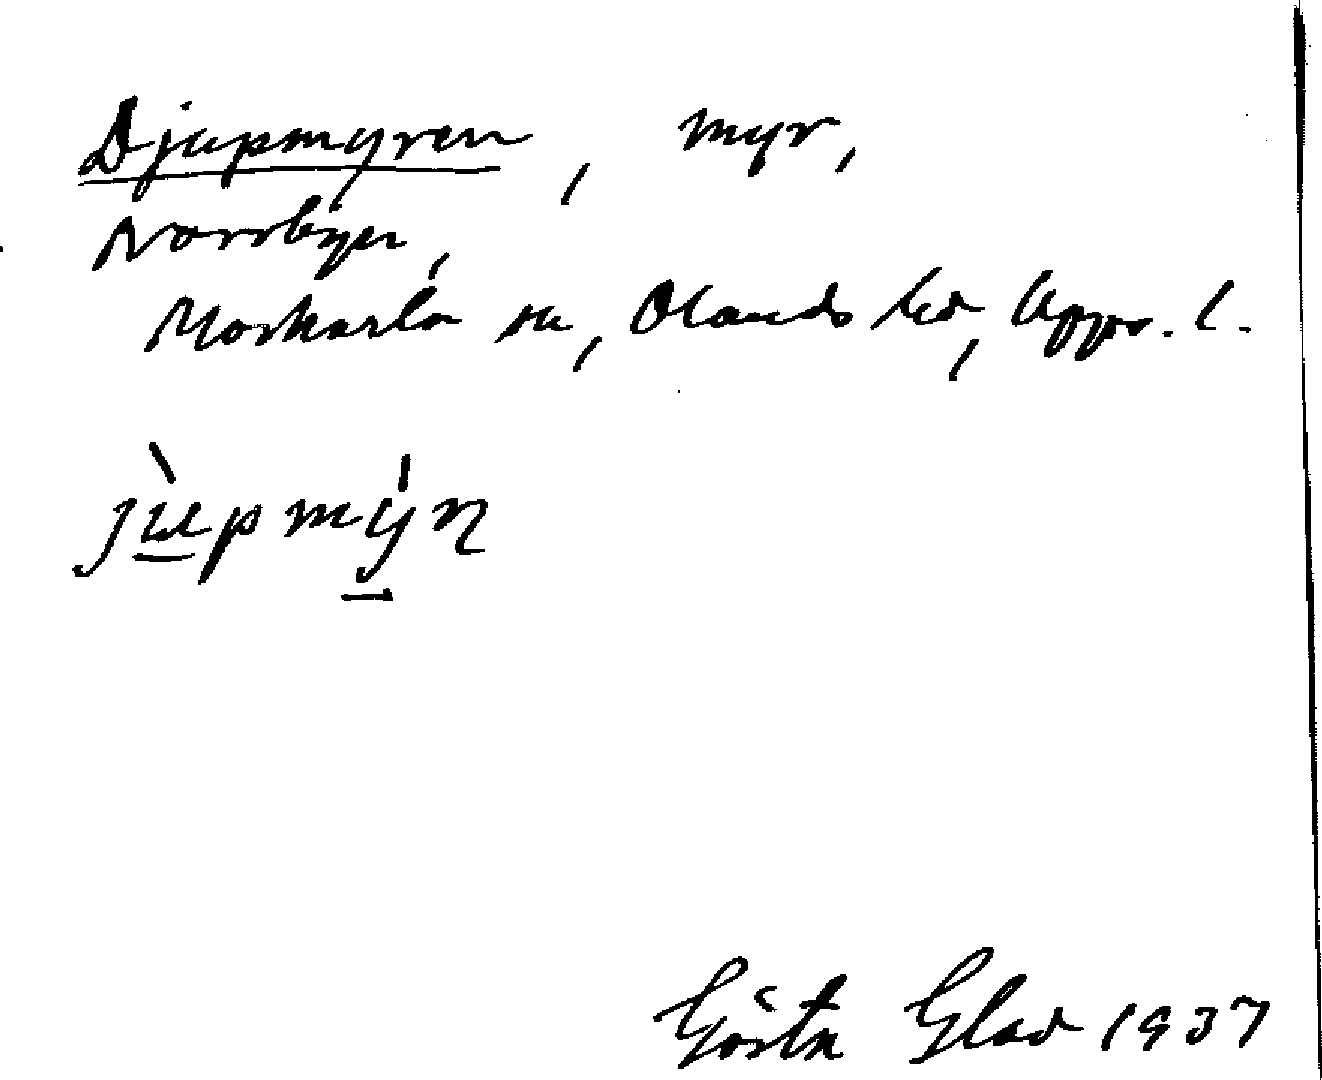 Djupmyren, myr,
Norrbyn,
Morkarla sn, Olands hd, Upps. l.
jùpmýn
Gösta Glad 1937